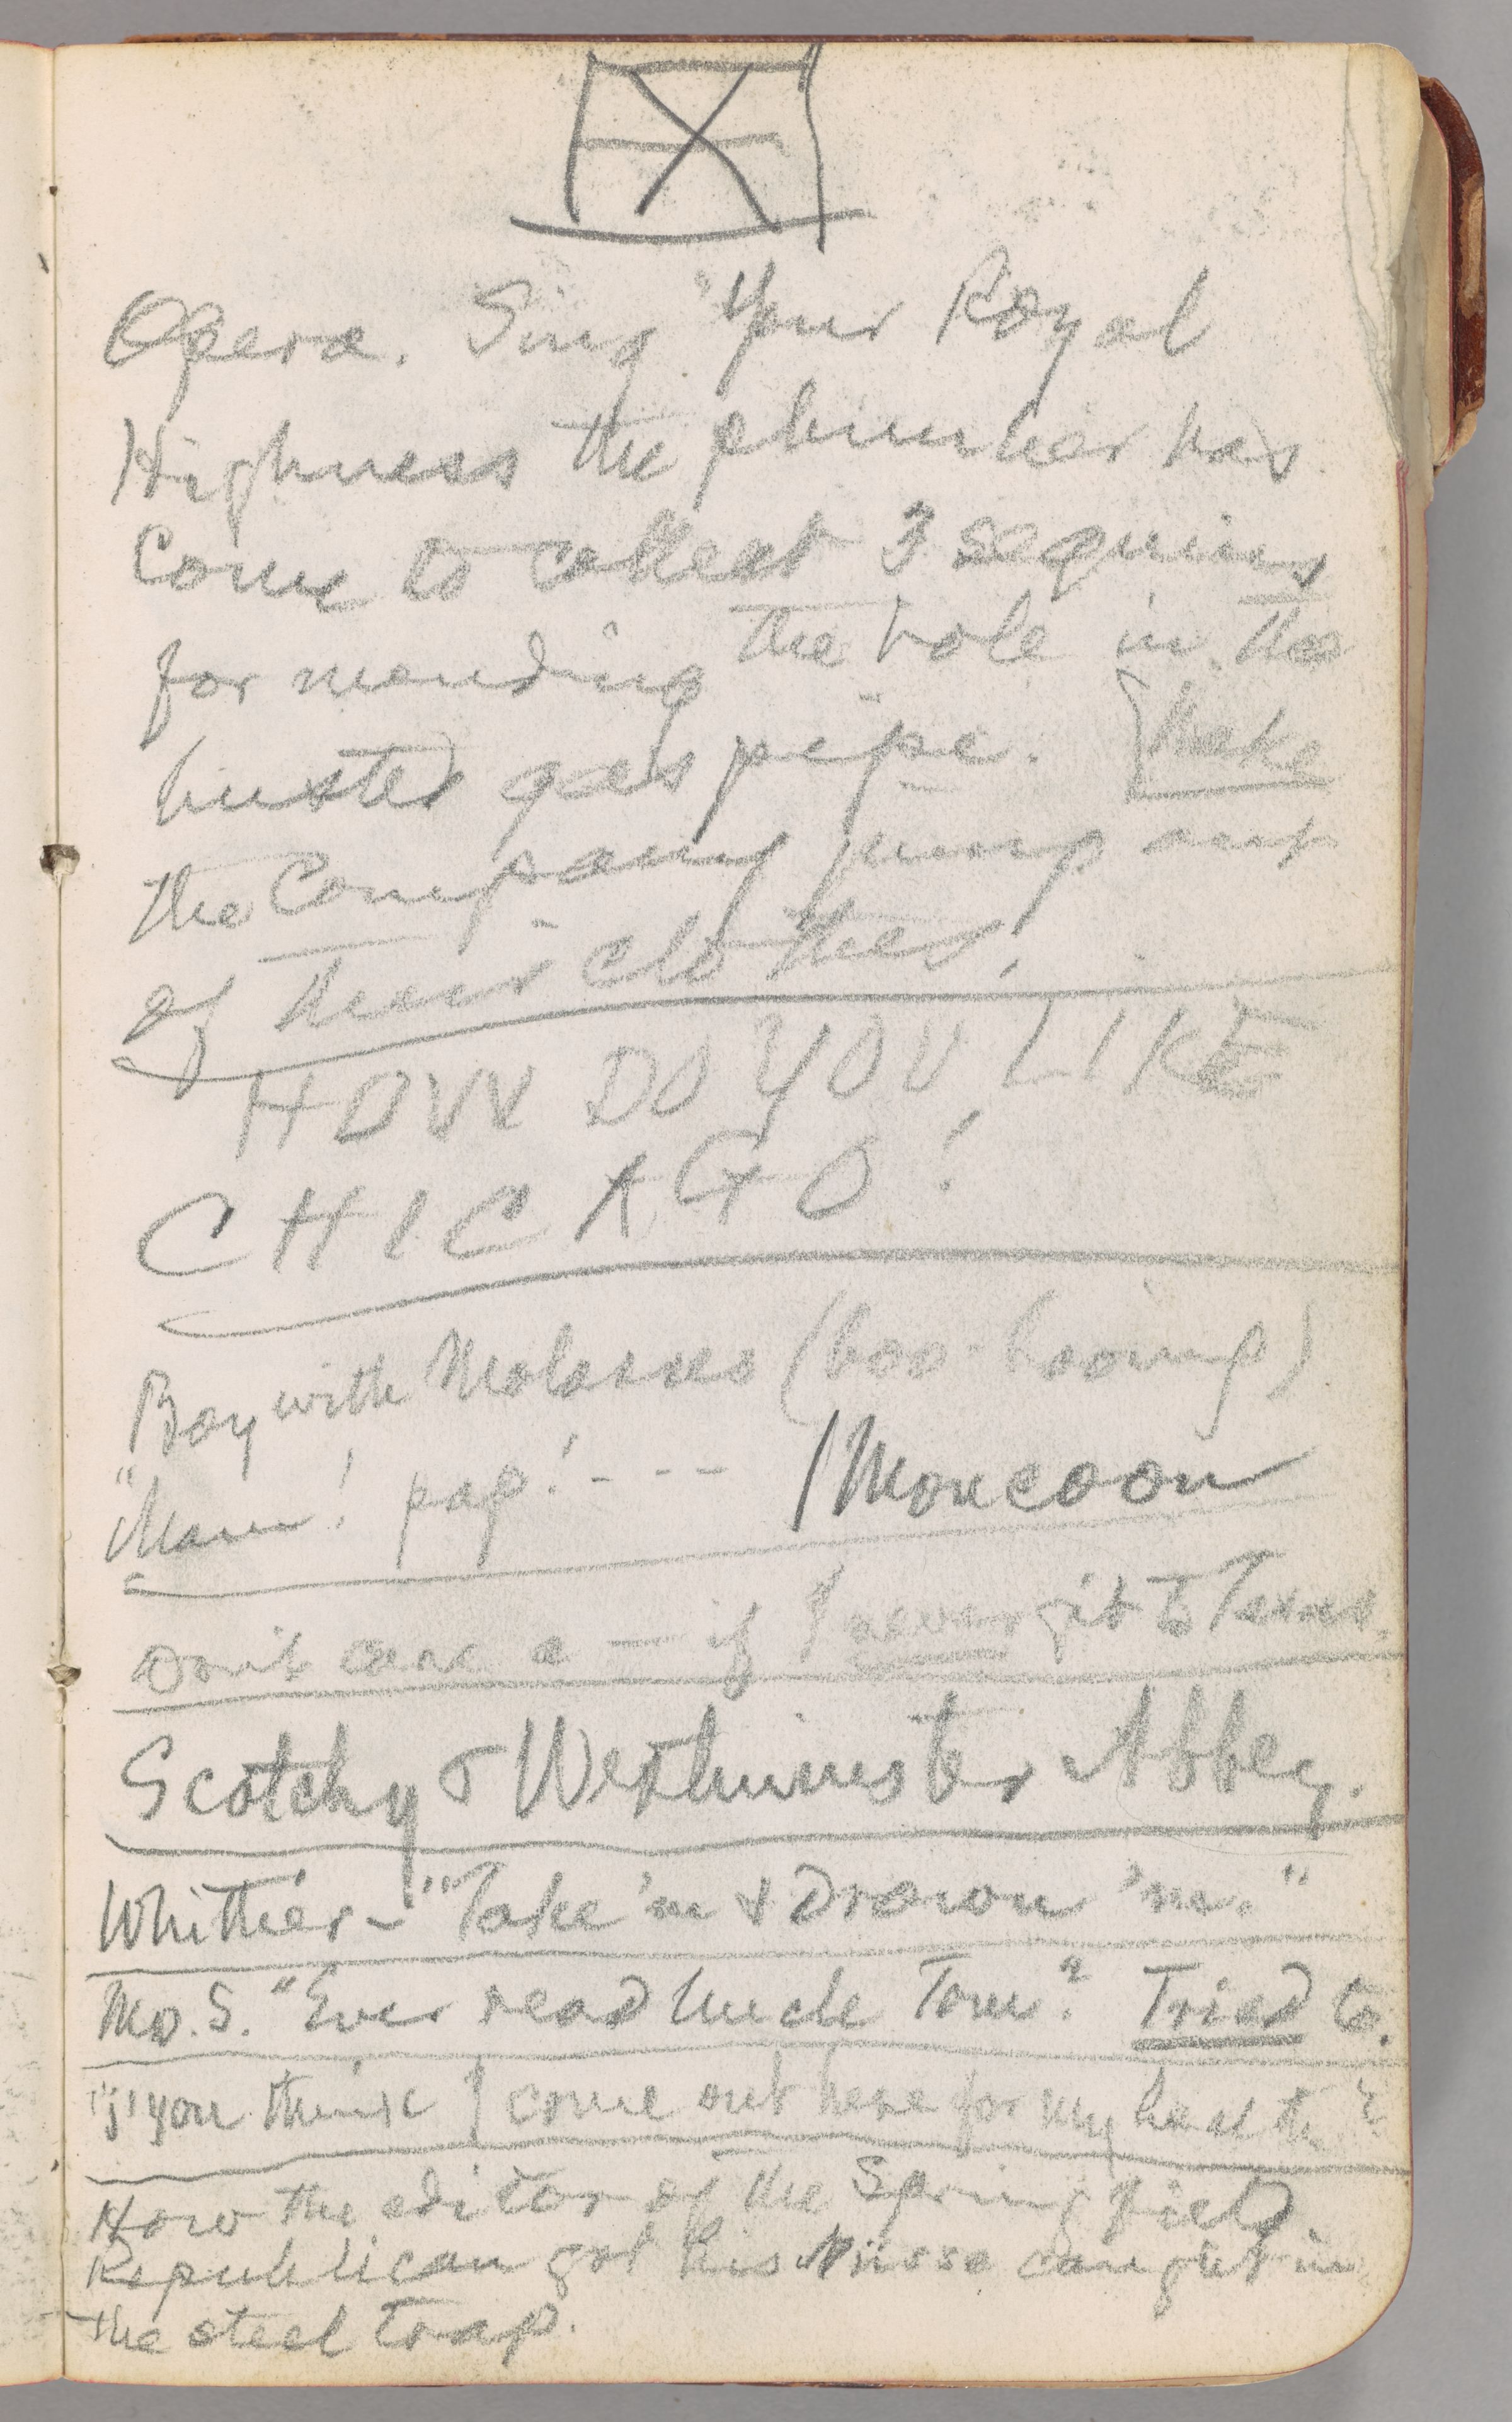 Opera. Sing "Your Royal
Highness the plumber has
Come to collect 3 sequins
for mending the hole in the
busted gas pipe. Make
the Company jump out
of their clothes!
HOW DO YOU LIKE
CHICAGO!
Boy with Molasses (boo-hooing)
"Mam! pap! - - -
/Moncoon
Don't care a — if I never git to Texas.
Scotchy & Westminster Abbey.
Whittier – "Take 'm & Drown 'm."
Mo. S. "Ever read Uncle Tom? Tried to.
"j' you think I come out here for my health?
How the editor of the Springfield
Republican got his caught in
the steel trap.